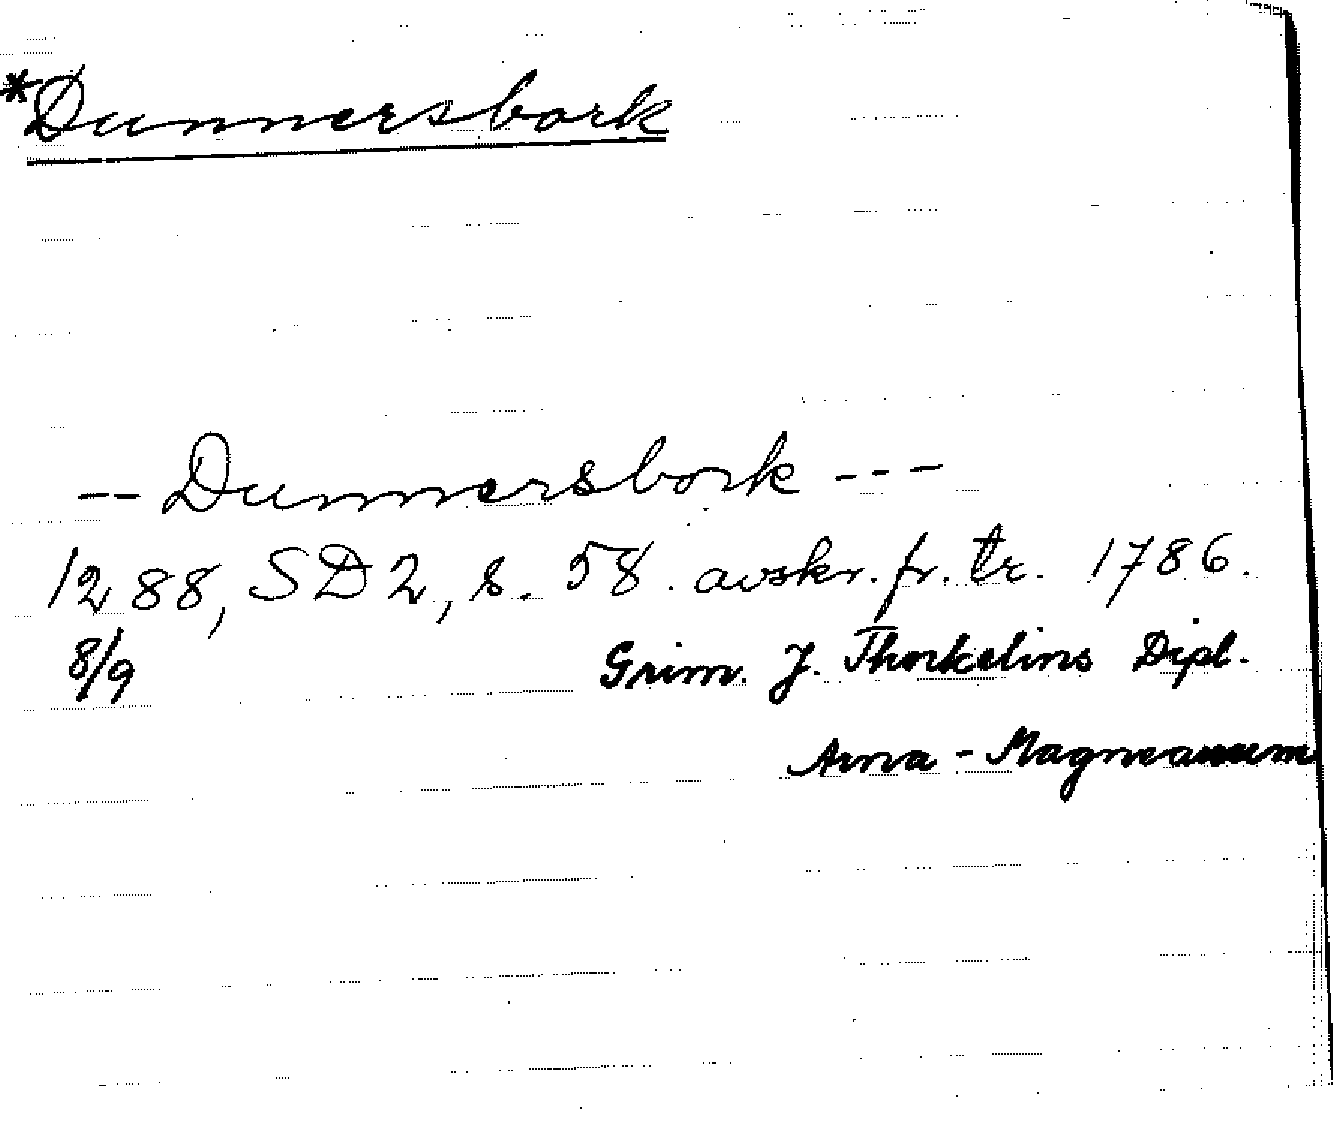 *Dunnersbork
-- Dunnersbork ---
1288, SD2, s. 58. avskr. fr. tr. 1786.
8/9 Grim. J. Thorkelins Dipl.
Arna-Magneanum